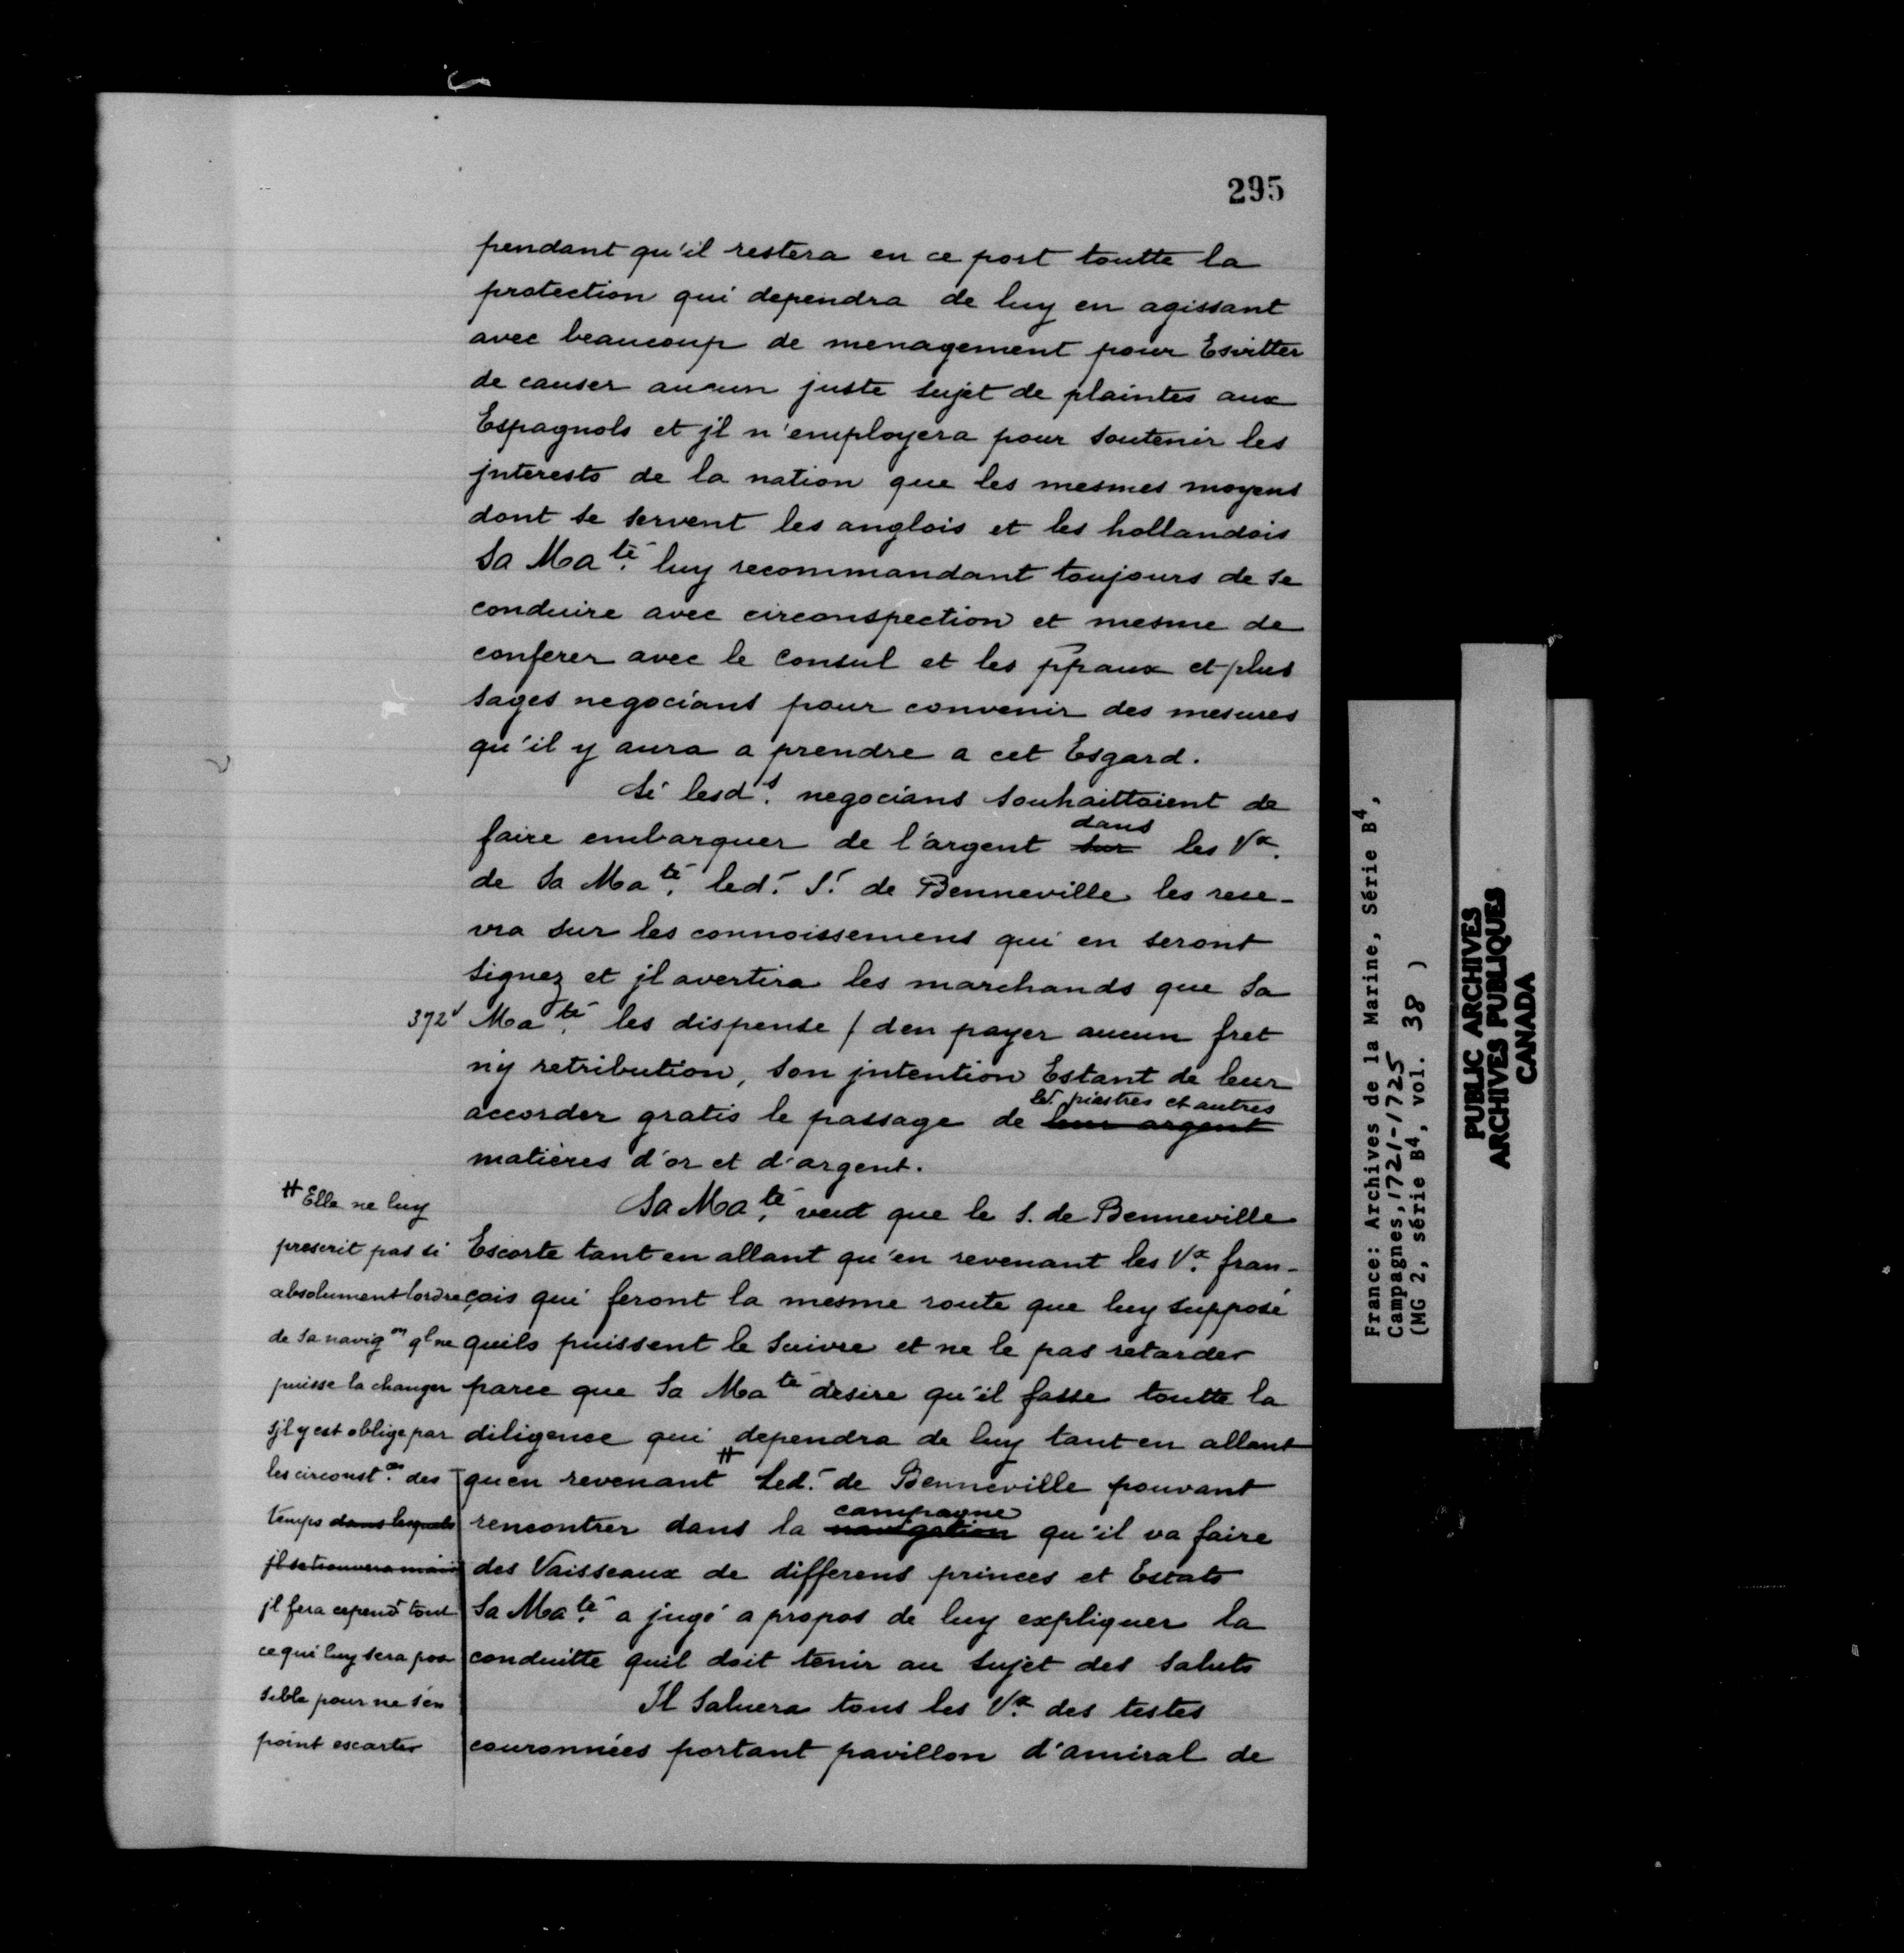 295
pendant qu'il restera en ce port toutte la
protection qui dependra de luy en agissant
avec beaucoup de menagement pour Esvitter
de causer aucun juste sujet de plaintes aux
Espagnols et jl n'employera pour soutenir les
jnterests de la nation que les mesmes moyens
dont se servent les anglois et les hollandois
Sa Ma.té luy recommandant toujours de se
conduire avec circonspection et mesme de
conferer avec le Consul et les ppaux et plus
sages negocians pour convenir des mesures
qu'il y aura a prendre a cet Esgard.
Si lesd.s negocians souhaittaient de
dans
faire embarquer de l'argent sur les Vx.
de Sa Ma.té led. S.r de Benneville les rece-
vra sur les connoissemens qui en seront
signez et jl avertira les marchands que Sa
372v Ma.té les dispense / den payer aucun fret
n'y retribution, son jntention Estant de leur
led. piastres et autres
accorder gratis le passage de leur argent
matieres d'or et d'argent.
Sa Ma.té veut que le S. de Benneville
Escorte tant en allant qu'en revenant les Vx. fran-
çois qui feront la mesme route que luy supposé
quils puissent le suivre et ne le pas retarder
parce que Sa Ma.té desire qu'il fasse toutte la
diligence qui dependra de luy tant en allant
quen revenant # Led. de Benneville pouvant
campagne
rencontrer dans la navigation qu'il va faire
des Vaisseaux de differens princes et Estats
Sa Ma.té a jugé a propos de luy expliquer la
conduitte quil doit tenir au sujet des saluts
Il Saluera tous les Vx. des testes
couronnées portant pavillon d'amiral de
# Elle ne luy
prescrit pas si
absolument lordre
de sa navig.on ql ne
puisse la changer
sjl y est oblige par
les circonst.ces des
temps dans lesquels
jl se trouvera mais
jl fera cepend.t tout
ce qui luy sera pos
sible pour ne s'en
point escarter
France: Archives de la Marine, Série B4,
Campagnes, 1721-1725
(MG 2, série B4, vol. 38 )
PUBLIC ARCHIVES
ARCHIVES PUBLIQUES
CANADA